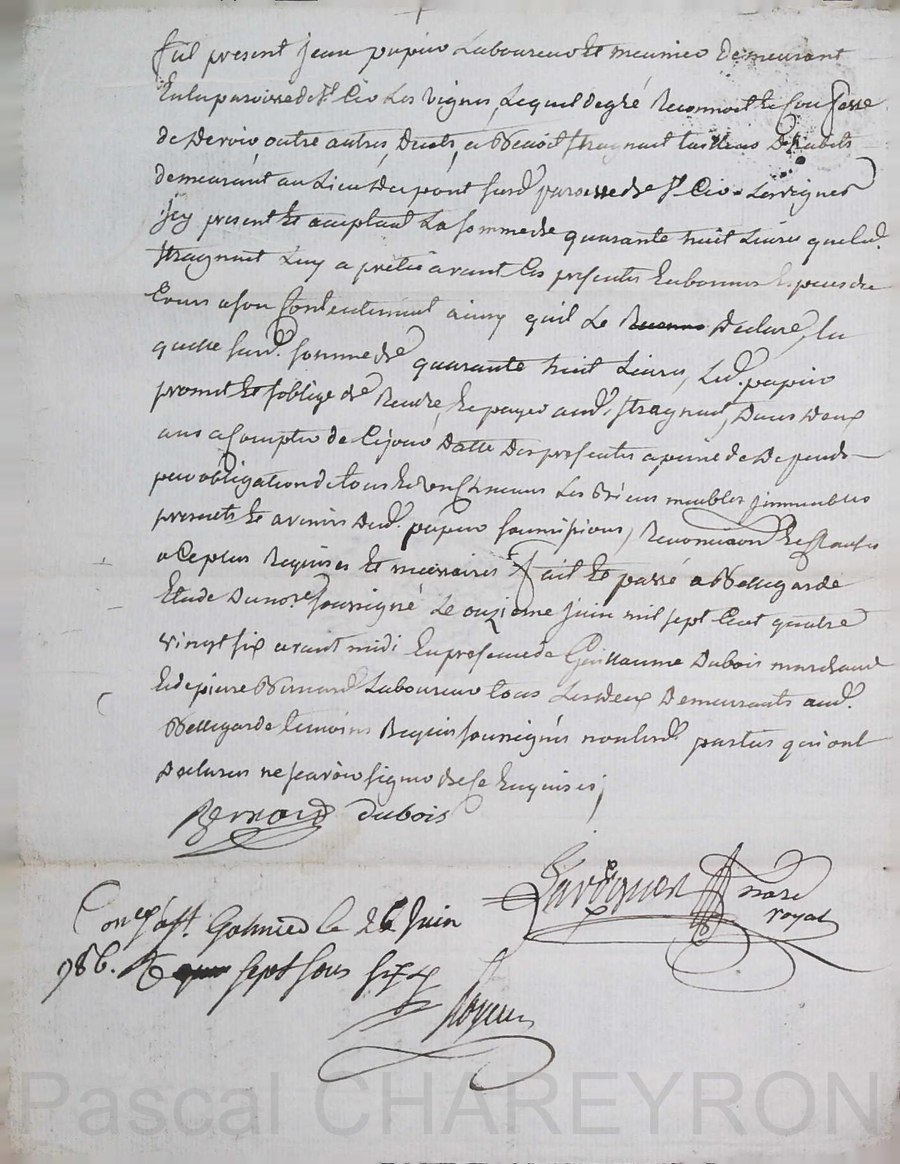 fut present jean papier Laboureur et meunier demeurant
En la paroisse de St Cir Les vignes, Lequel de gré Reconnoit et Confesse
de devoir outre autres Deubts, a Benoit Stragnat tailleur D'habits
demeurant au Lieu du pont surd. paroisse de St Cir Les vignes
jcy present et aceptant La somme de quarante huit Livres que led.
Stragnat Luy a prêtée avant Ces presentes En bonnes Especes du
Cours a son Contentement ainsy quil Le declare, la
quelle surd. somme de quarante huit Livres, Led. papier
promet et soblige de Rendre et payer aud. Stragnat, Dans Deux
ans a Compter de Cejour datte Des presentes a peine de Depends
par obligation de tous Les Biens meubles jmmeubles
presents et avenirs Dud. papier soumissions, Renonciations et Clauses
a Ce plus Requises et necessaires fait et passé a Bellegarde
Etude du nore soussigné Le onzieme juin mil sept Cent quatre
vingt six avant midi En presence de Guillaume Dubois marchand
et de pierre Bernard Laboureur tous Les deux Demeurants aud.
Bellegarde temoins Requis soussignés non Lesd. parties qui ont
Declarees ne savoir signer de Ce Enquises;
Bernard dubois
nore
royal
Con. le 26 Juin
786. sept sous six
Pascal CHAREYRON